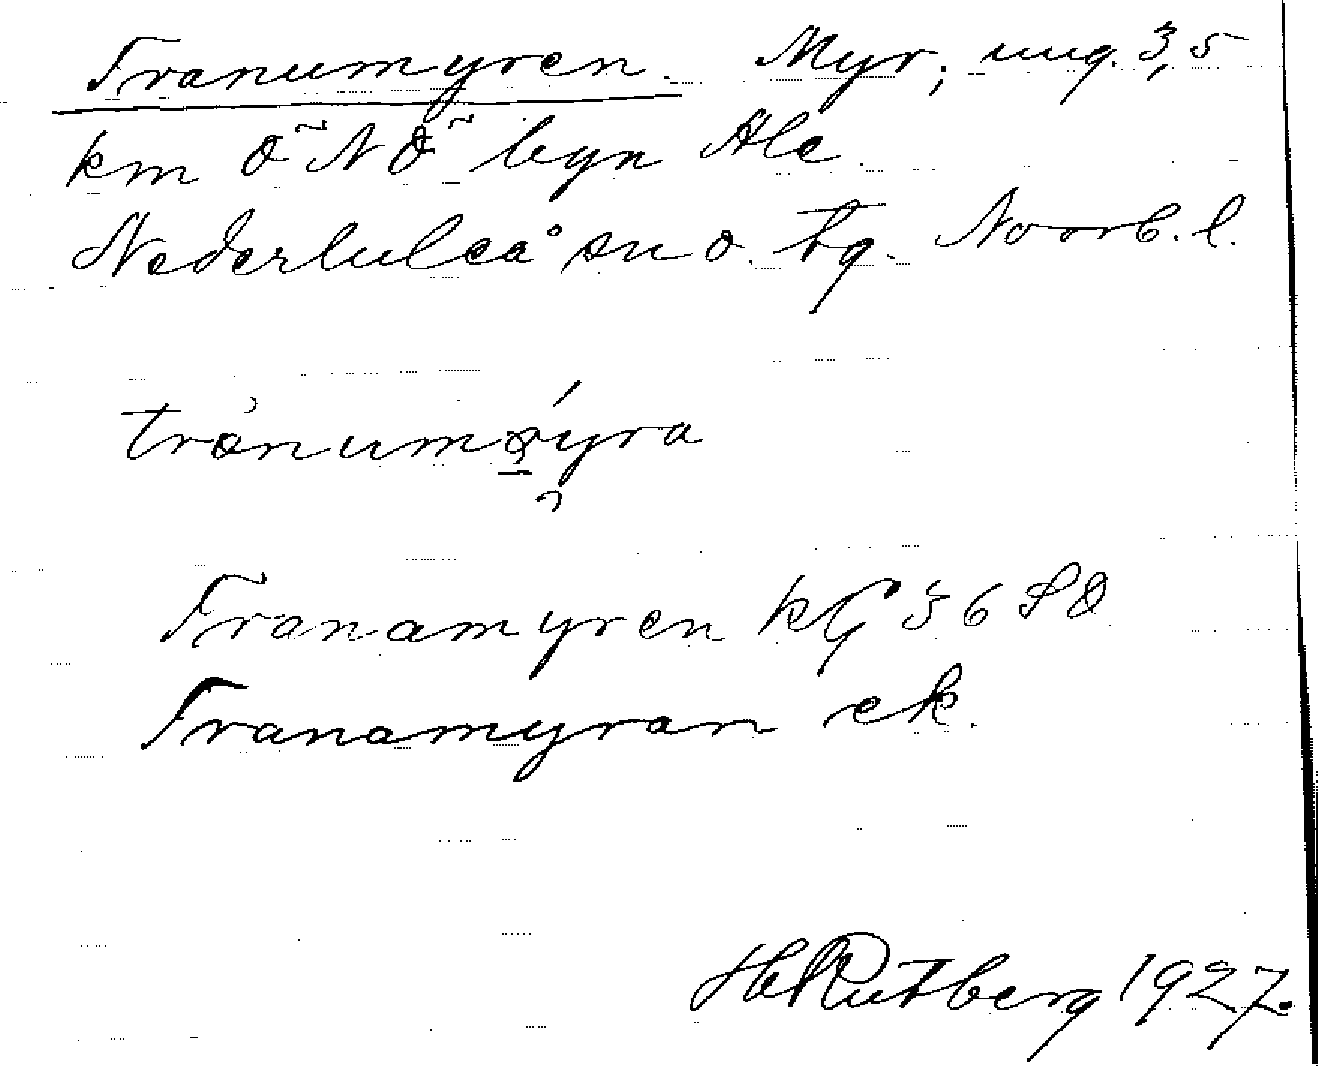 Tranumyren. Myr, ung. 3,5
km ÖNÖ byn Ale.
Nederluleå sn o. tg. Norrb. l.
Tranamyren kG 36 SO
Tranamyran ek.
H Rutberg 1927.